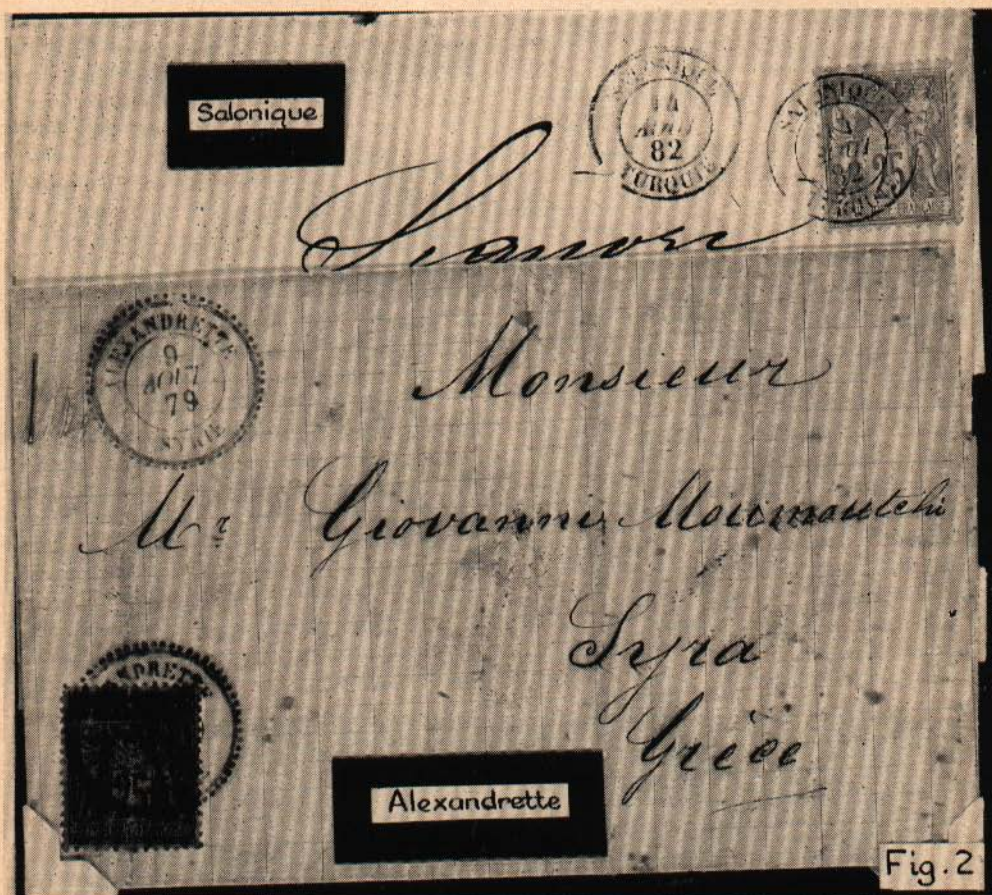 Salonique
SALONIQUE
14
AOUT
82
TURQUIE
SALONIQUE
82
25
ALEXANDRETTE
9
AOUT
79
SYRIE
Monsieur
Mr Giovanni Moumoutchi
Syra
Grèce
Alexandrette
Fig. 2